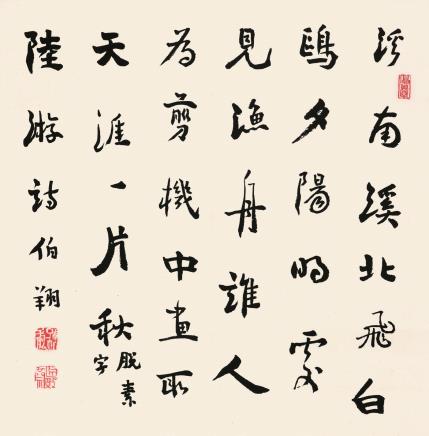 溪南溪北飛白
鷗夕陽明處
見漁舟誰人
為剪機中畫取
天涯一片秋 脫素字
陸游詩伯翔